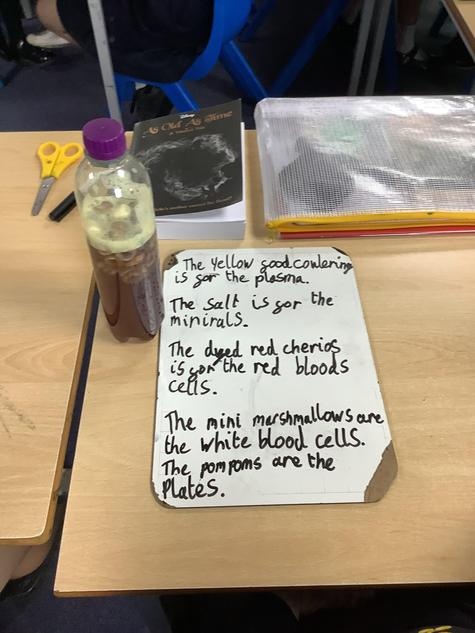 Disney
As Old As Time
A Twisted Tale
The Yellow goodcoulering
is gor the plasma.
The salt is gor the
minirals.
The dyed red cherios
is gor the red bloods
cells.
The mini marshmallows are
the white blood cells.
The pompoms are the
Plates.